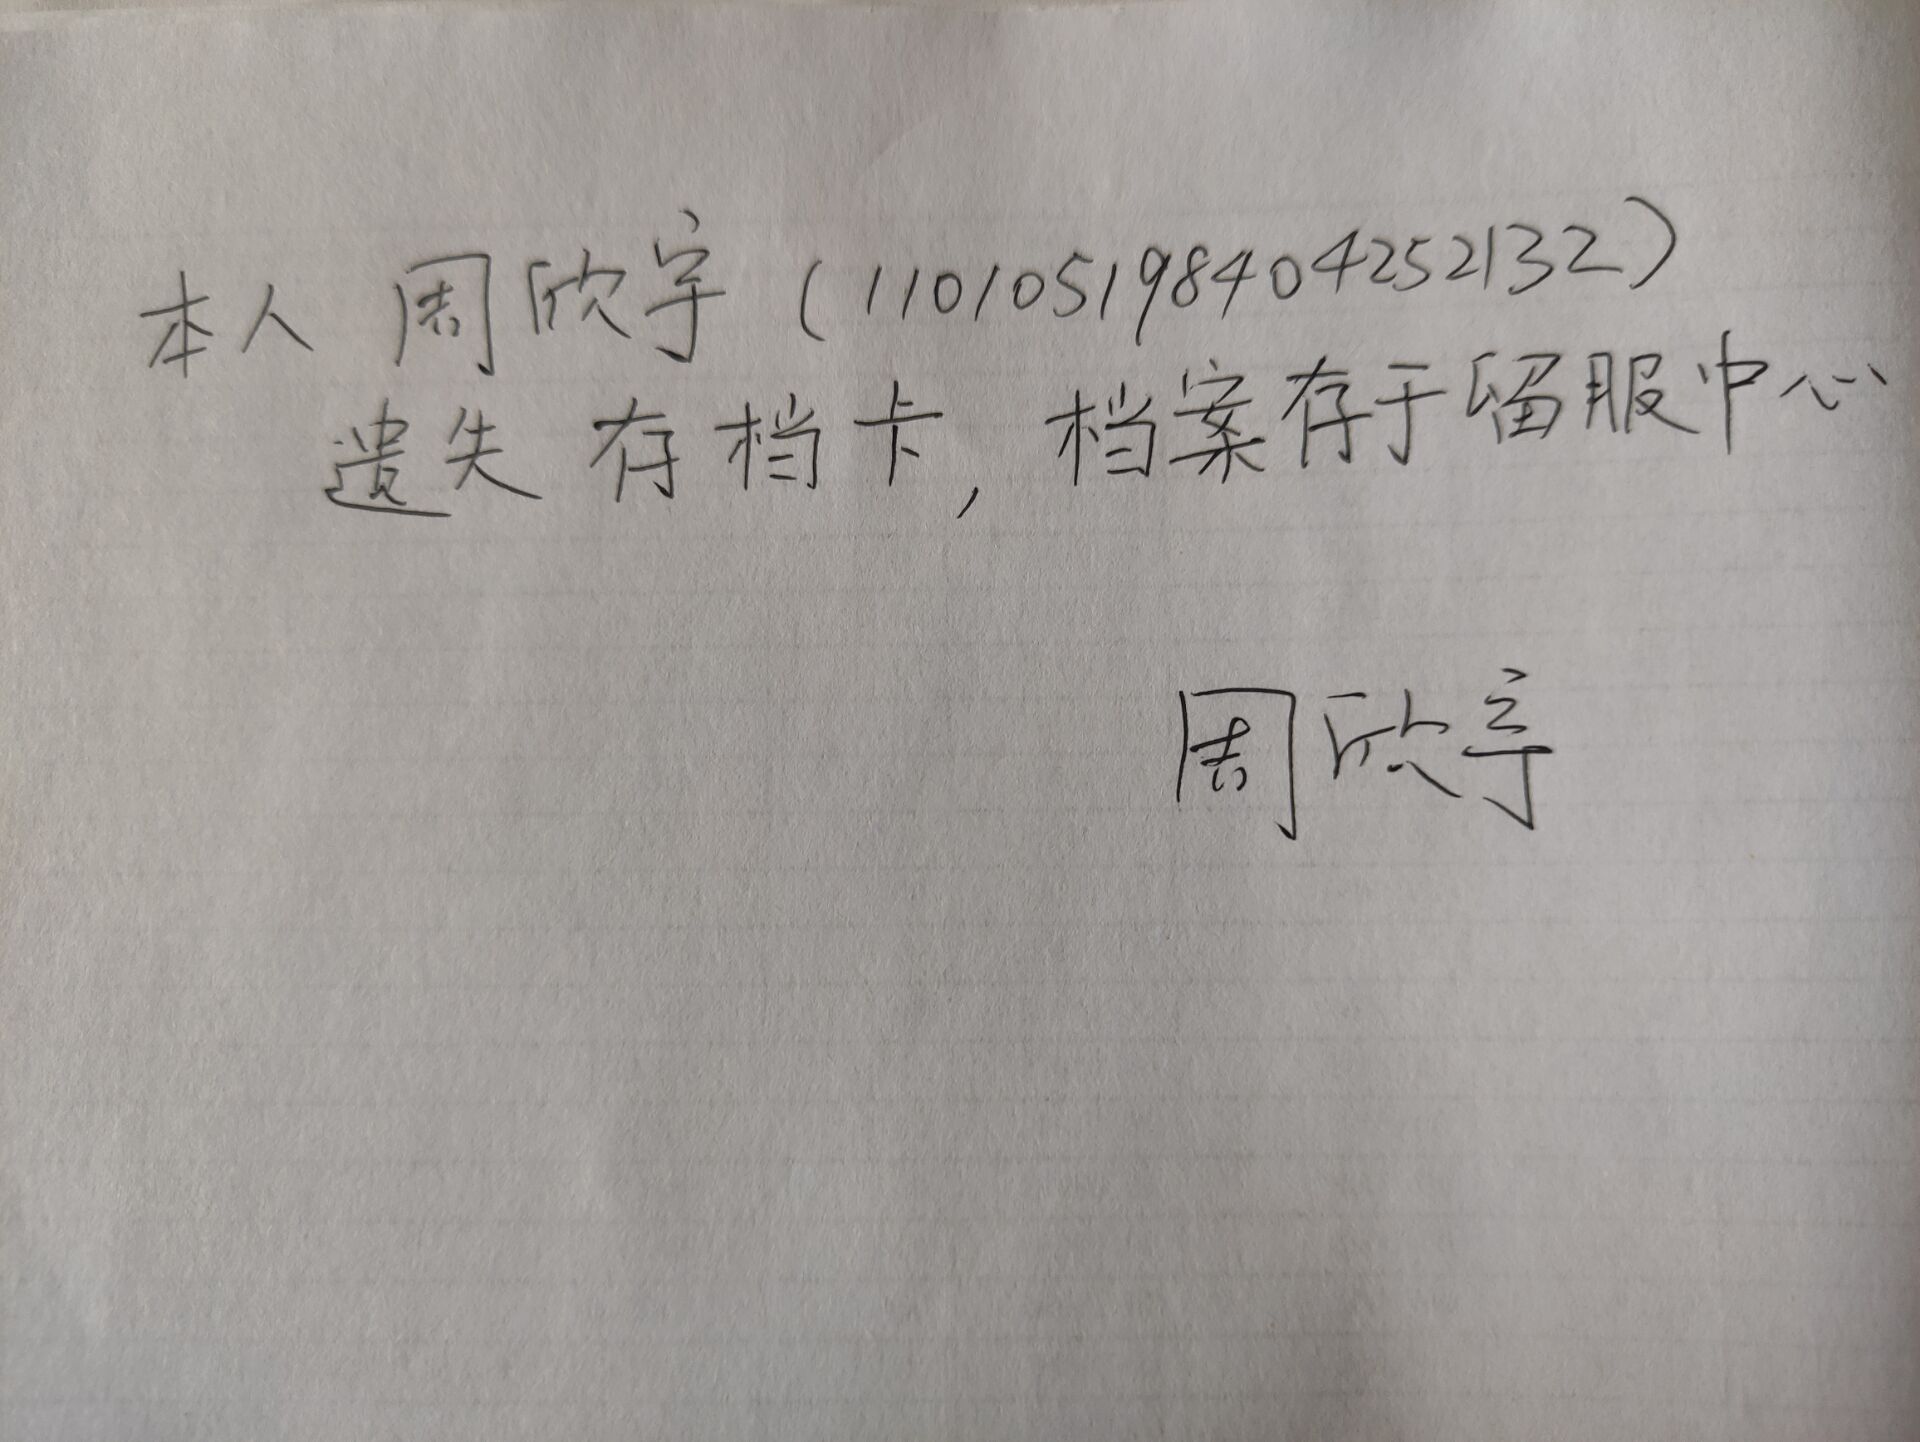 本人 周欣宇（110105198404252132）
遗失存档卡，档案存于留服中心
周欣宇